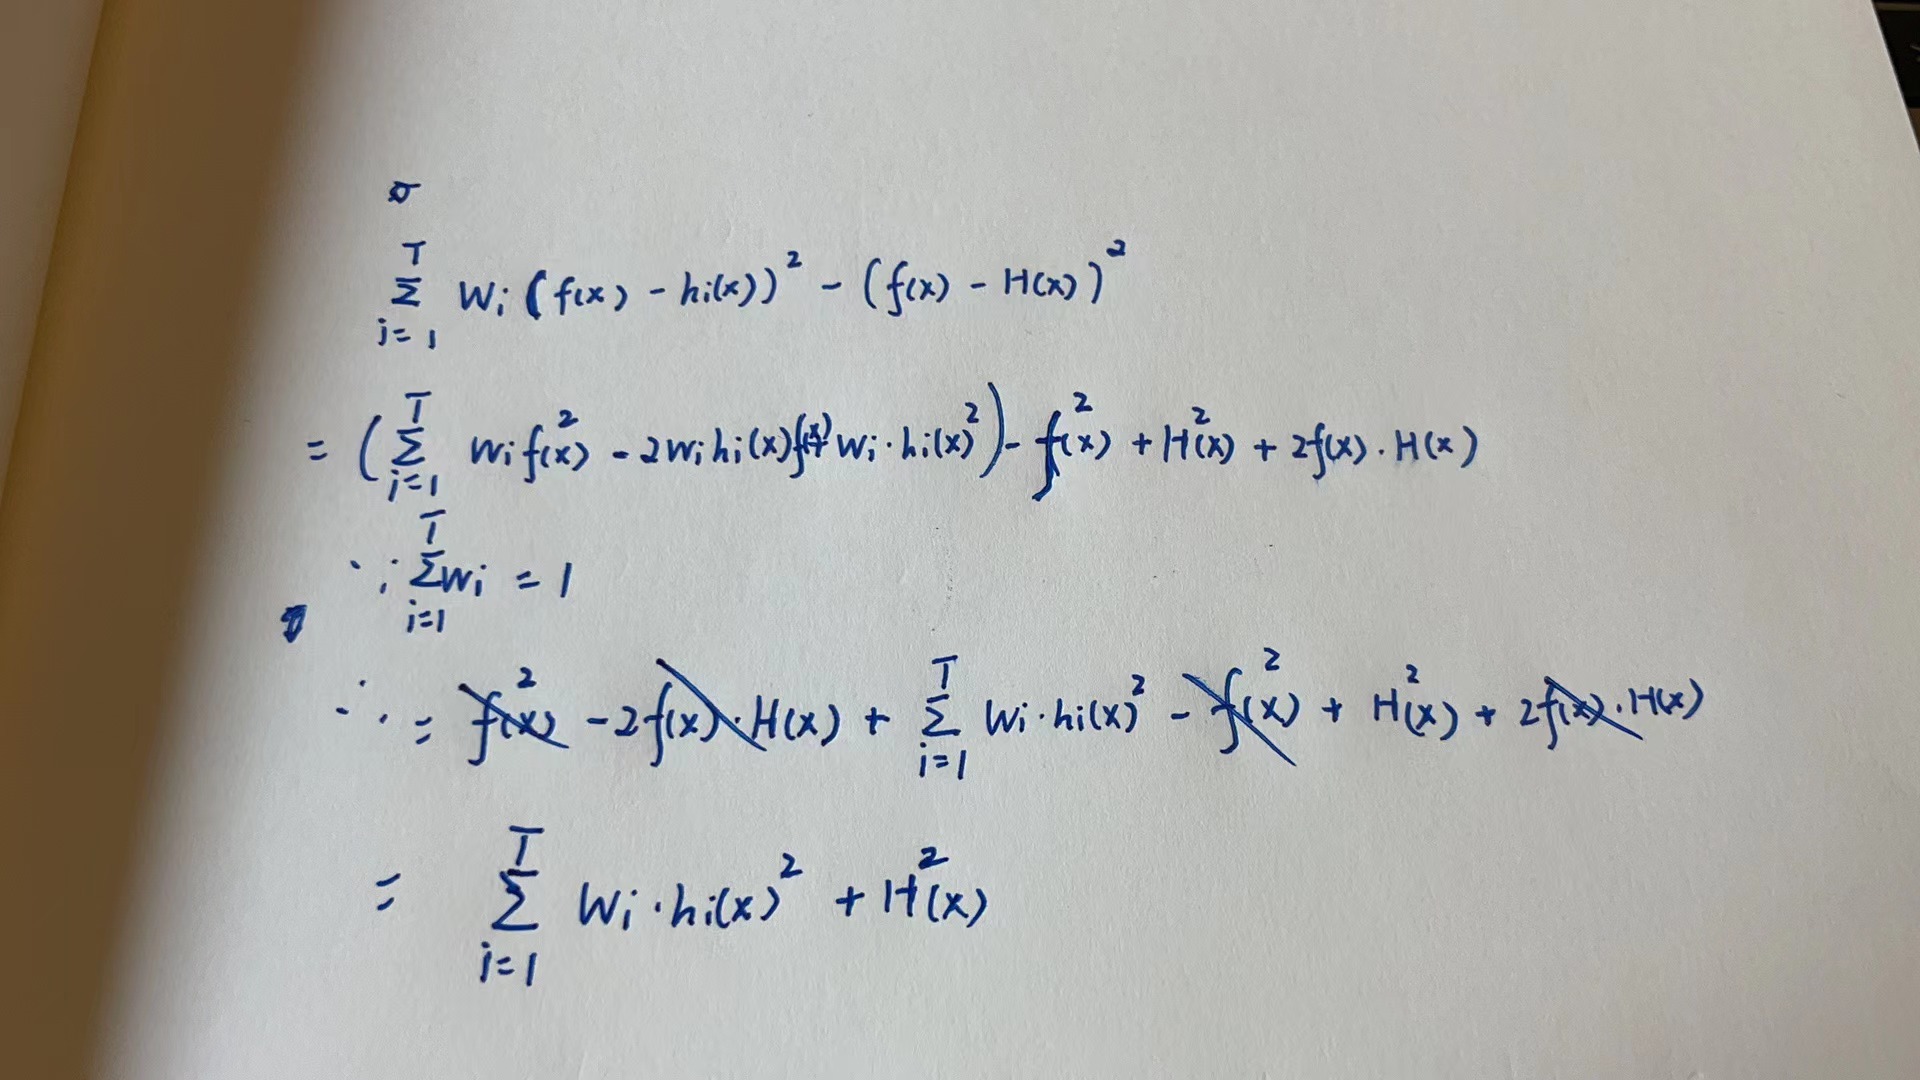 T
Σ Wi (f(x) - hi(x))² - (f(x) - H(x))²
i=1
= (Σ_{i=1}^{T} wi f(x)² - 2wi hi(x)f(x)+ wi·hi(x)²) - f(x)² + H²(x) + 2f(x)·H(x)
∵ Σ_{i=1}^{T} wi = 1
∴ = f(x)² - 2f(x)·H(x) + Σ_{i=1}^{T} Wi·hi(x)² - f(x)² + H²(x) + 2f(x)·H(x)
= Σ_{i=1}^{T} Wi·hi(x)² + H²(x)